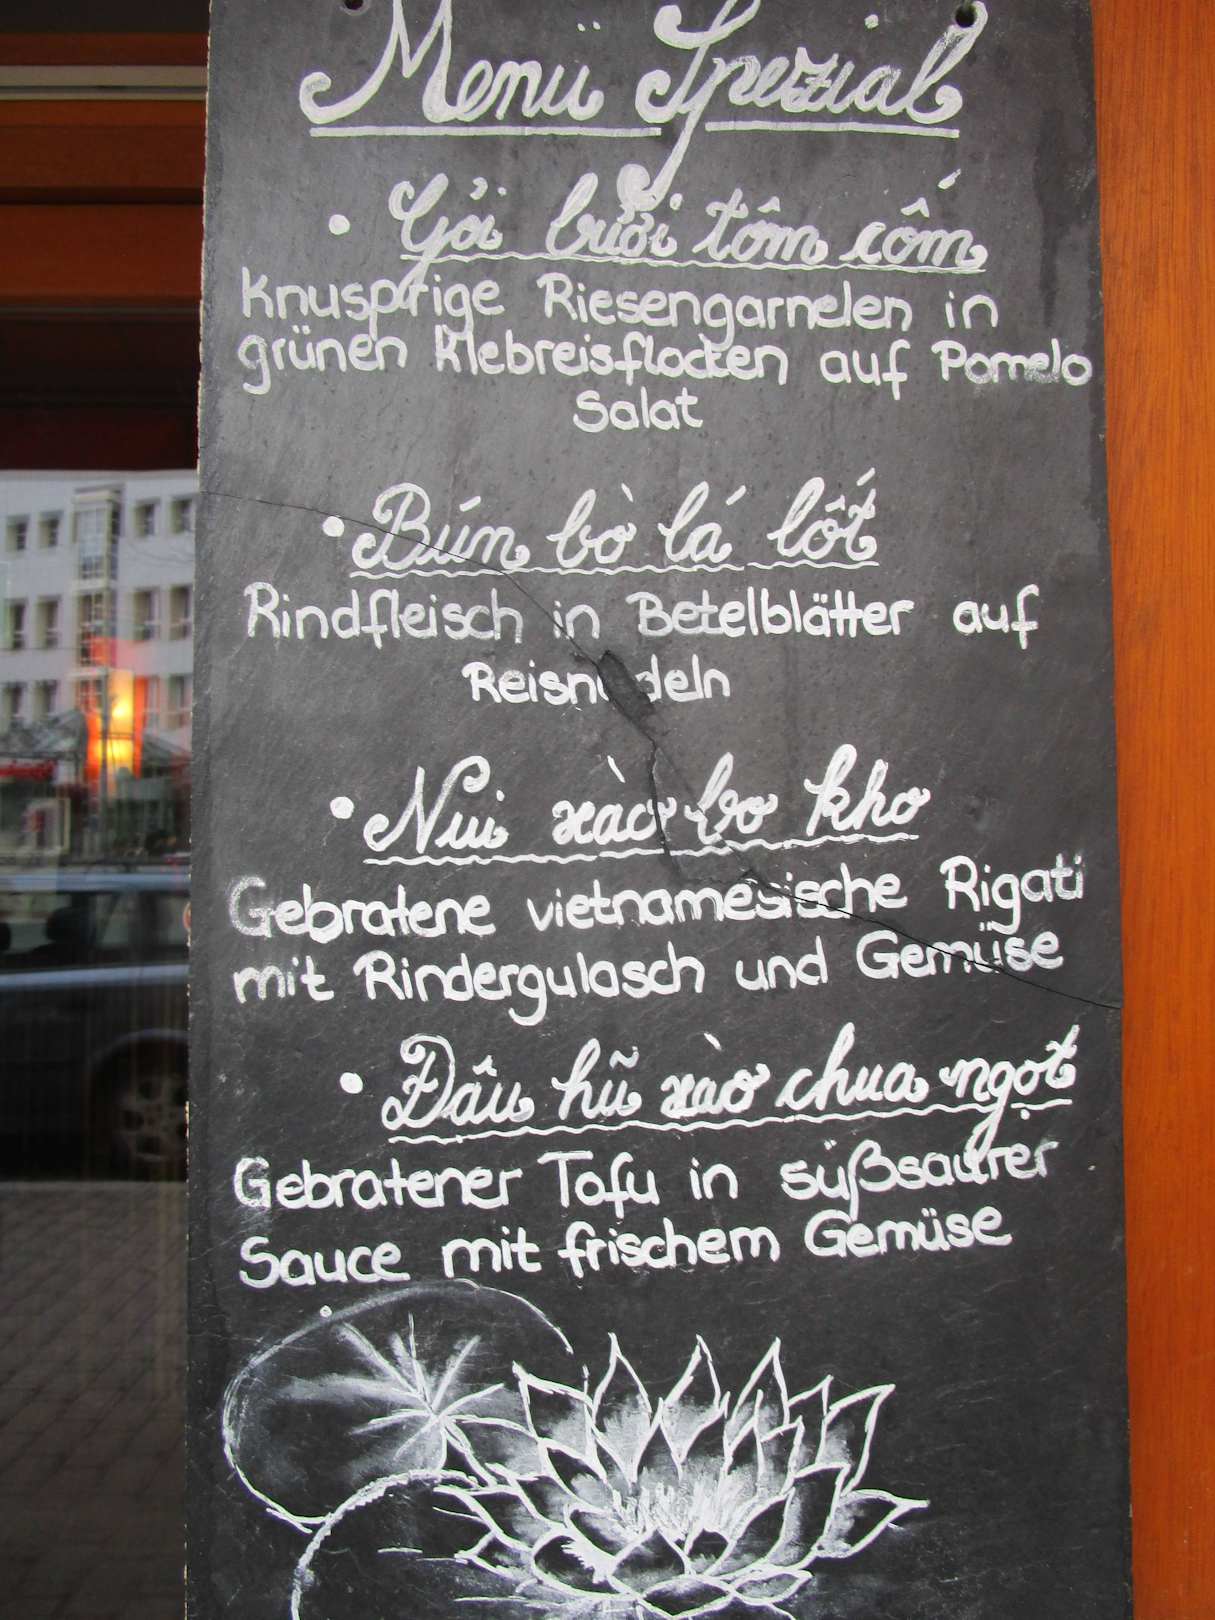 Menü Spezial
• Gỏi bưởi tôm cốm
Knusprige Riesengarnelen in
grünen Klebreisflocken auf Pomelo
Salat
• Bún bò lá lốt
Rindfleisch in Betelblätter auf
Reisnudeln
• Nui xào bo kho
Gebratene vietnamesische Rigati
mit Rindergulasch und Gemüse
• Đâu hũ xào chua ngọt
Gebratener Tofu in süßsaurer
Sauce mit frischem Gemüse